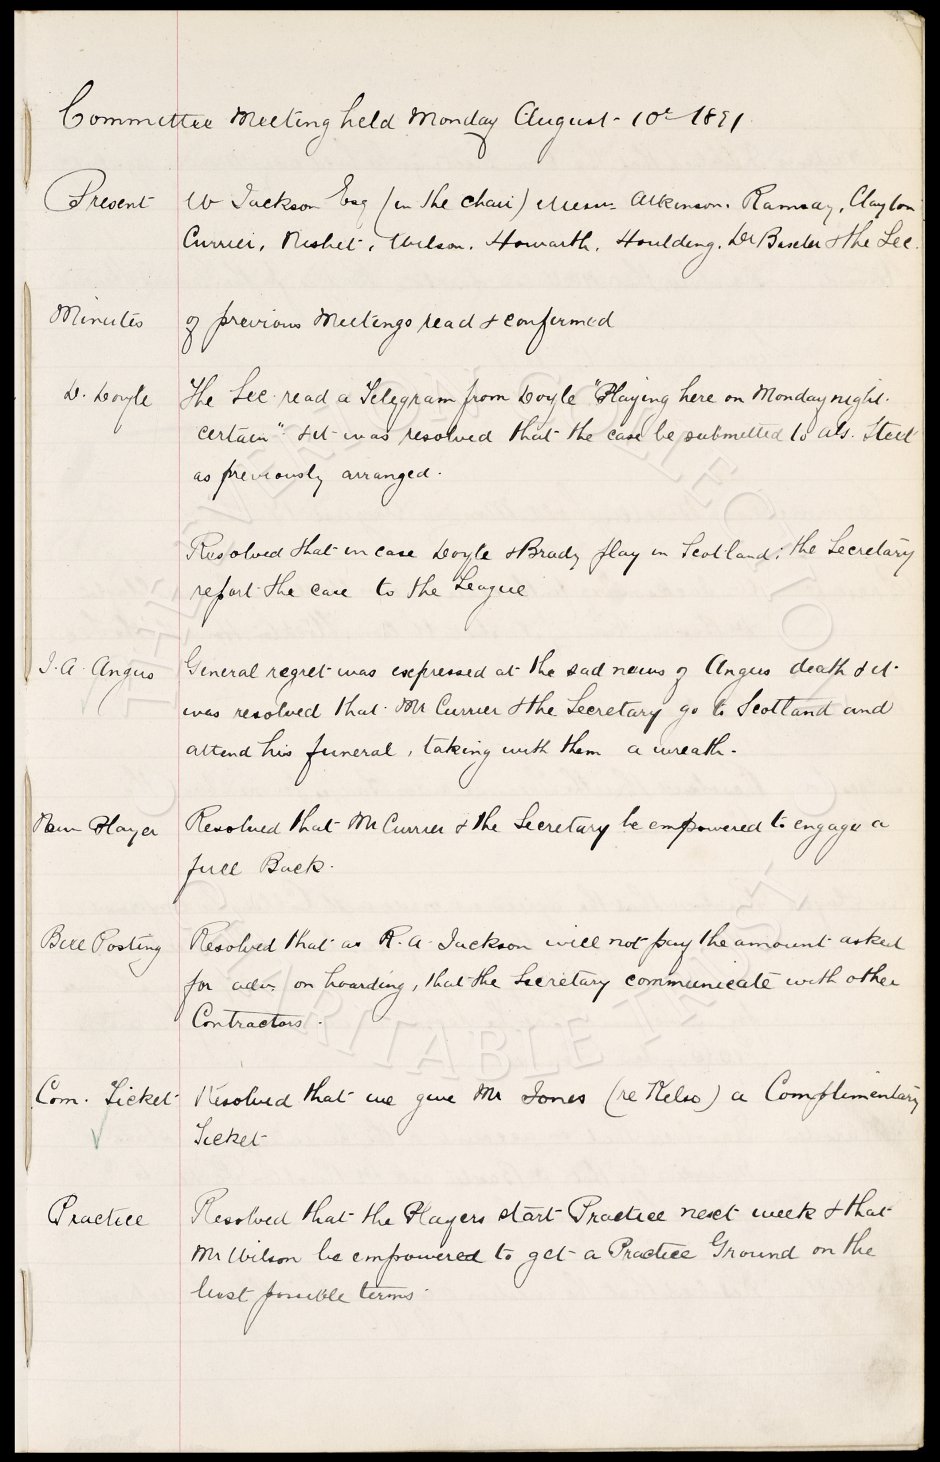 Committee Meeting held Monday August 10th 1891
Present W Jackson Esq (in the chair) Messrs Atkinson, Ramsay, Clayton
Currier, Nisbet, Wilson, Howarth, Houlding, Dr Baxter & the Sec.
Minutes of previous Meetings read & confirmed
D. Doyle The Sec. read a Telegram from Doyle "Playing here on Monday night
certain" & it was resolved that the case be submitted to
as previously arranged.
Resolved that in case Doyle & Brady play in Scotland, the Secretary
report the case to the League
J. A. Angus General regret was expressed at the sad news of Angus death & it
was resolved that Mr Currier & the Secretary go to Scotland and
attend his funeral, taking with them a wreath.
New Player Resolved that Mr Currier & the Secretary be empowered to engage a
full Back.
Bill Posting Resolved that as R. A. Jackson will not pay the amount asked
for adv. on hoarding, that the Secretary communicate with other
Contractors.
Com. Ticket Resolved that we give Mr Jones (re Kelso) a Complimentary
Ticket
Practice Resolved that the Players start Practice next week & that
Mr Wilson be empowered to get a Practice Ground on the
best possible terms.
THE EVERTON COLLECTION
CHARITABLE TRUST